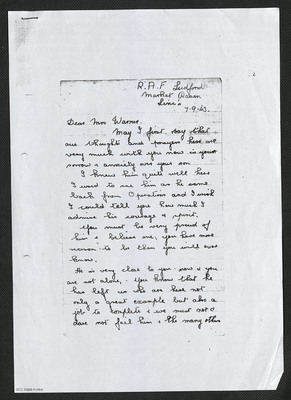 R.A.F Ludford
Market Rasen
Lincs
7-9-43.
Dear Mrs Warne.
May I first say that
our thoughts and prayers here are
very much with you now in your
sorrow & anxiety over your son.
I knew him quite well here
I used to see him as he came
back from Operations and I wish
I could tell you how much I
admire his courage & spirit.
You must be very proud of
him & believe me, you have more
reason to be than you will ever
know.
He is very close to you now & you
are not alone. You know that he
has left us who are here not
only a great example but also a
job to complete & we must not &
dare not fail him & the many others